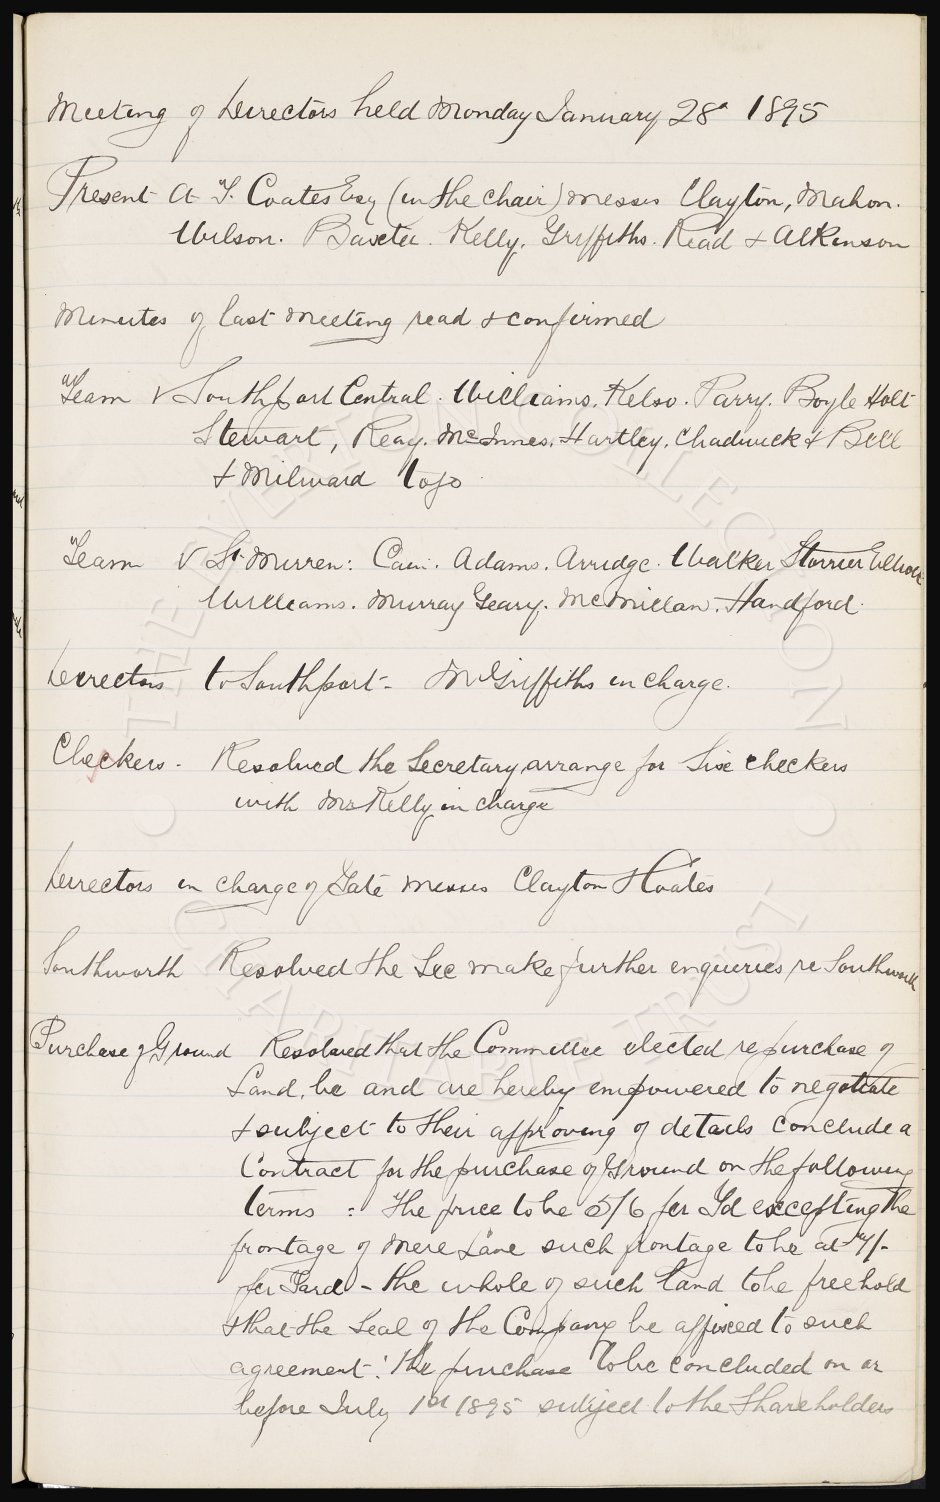 Meeting of Directors held Monday January 28th 1895
Present A. T. Coates Esq (in the chair) Messrs Clayton, Mahon.
Wilson. Baxter. Kelly. Griffiths. Read & Atkinson
Minutes of last meeting read & confirmed
Team v Southport Central. Williams. Kelso. Parry. Boyle Holt
Stewart, Reay. McInnes. Hartley. Chadwick & Bell
& Milward to go
Team v St. Mirren: Cain. Adams. Arridge. Walker Storrier Elliott
Williams. Murray Geary. McMillan. Handford.
Directors to Southport - Mr Griffiths in charge.
Checkers - Resolved the Secretary arrange for Six checkers
with Mr Kelly in charge
Directors in charge of Gate Messrs Clayton & Coates
Southworth Resolved the Sec make further enquiries re Southworth
Purchase of Ground Resolved that the Committee elected re purchase of
Land, be and are hereby empowered to negotiate
& subject to their approving of details conclude a
Contract for the purchase of Ground on the following
terms : The price to be 5/6 per Yd excepting the
frontage of Mere Lane such frontage to be at 7/-
per Yard - the whole of such land to be freehold
& that the Seal of the Company be affixed to such
agreement: the purchase to be concluded on or
before July 1st 1895 subject to the Shareholders
THE EVERTON COLLECTION
CHARITABLE TRUST